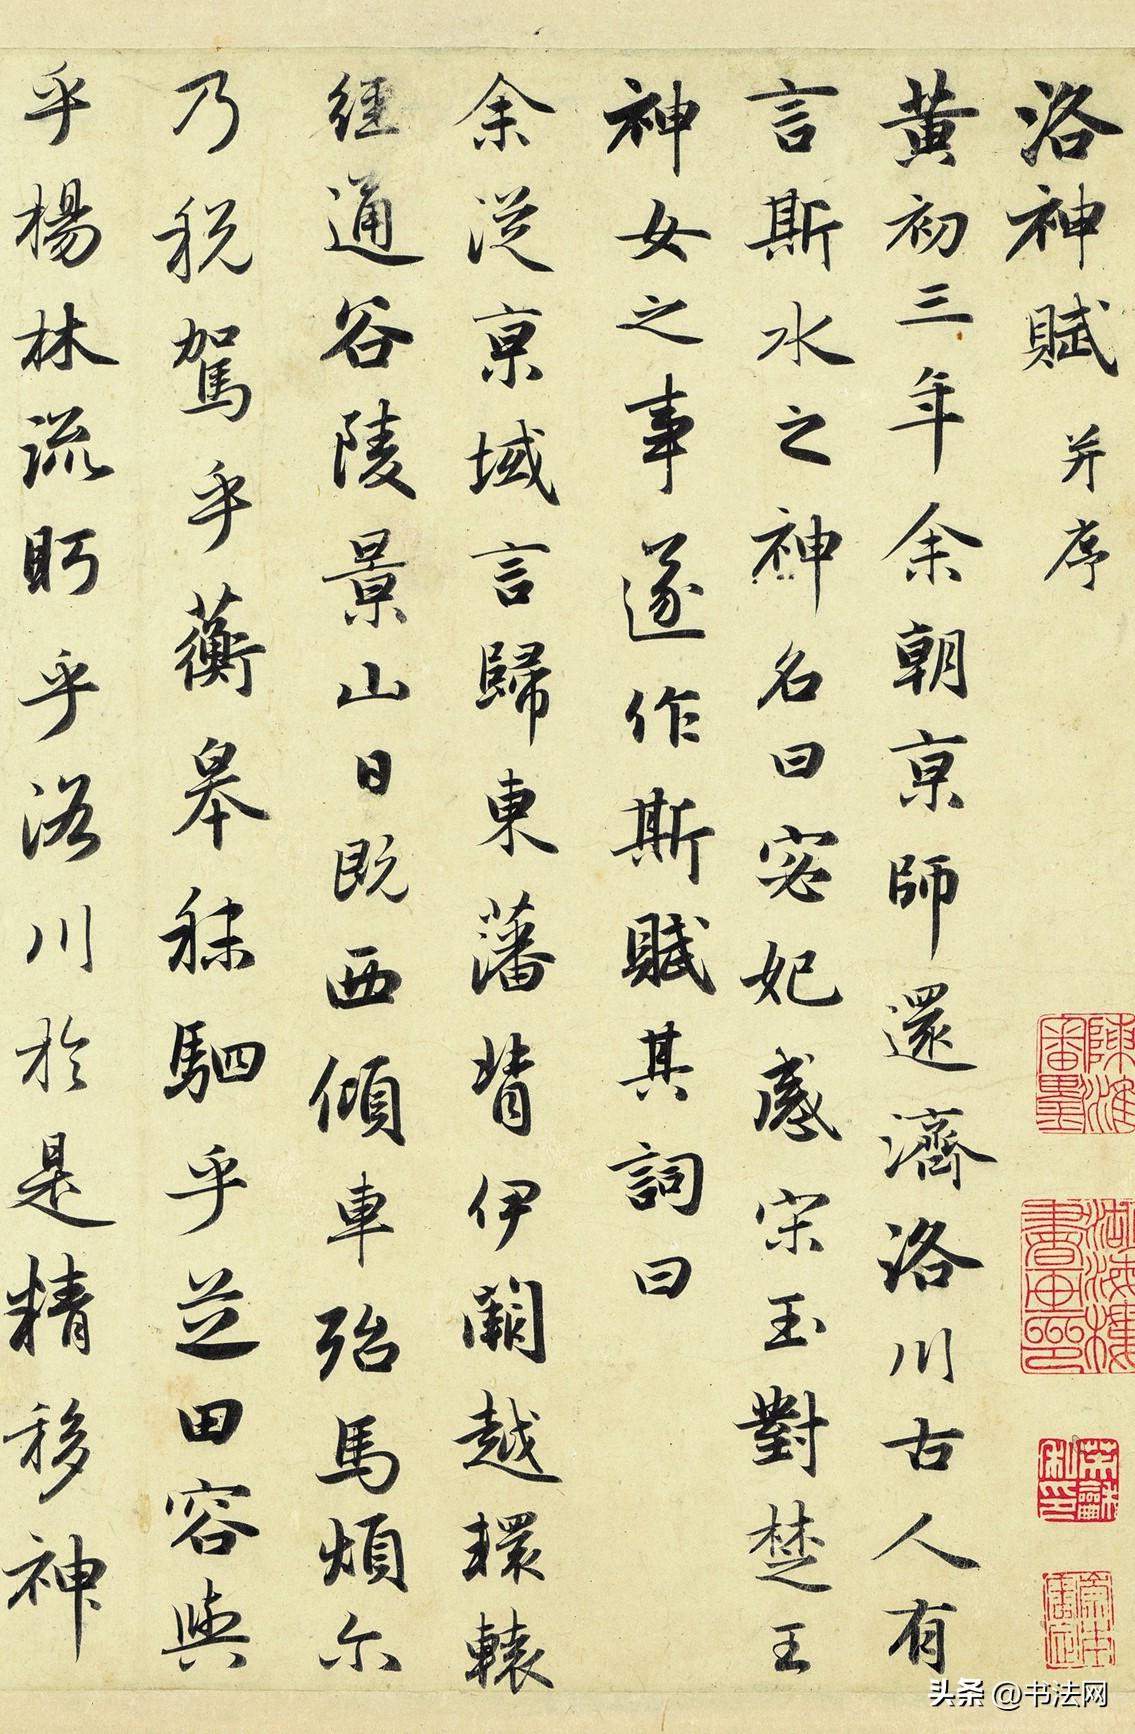 洛神賦 并序
黄初三年余朝京師還濟洛川古人有
言斯水之神名曰宓妃感宋玉對楚王
神女之事遂作斯賦其詞曰
余從京域言歸東藩背伊闕越轘轅
經通谷陵景山日既西傾車殆馬煩尔
乃税駕乎蘅皋秣駟乎芝田容與
乎楊林流眄乎洛川於是精移神
头条 @书法网